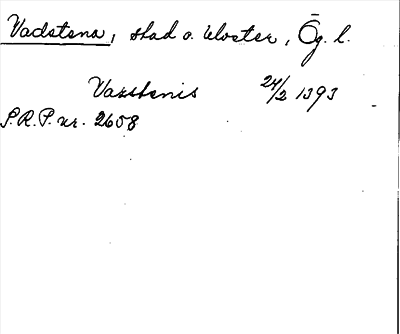 Vadstena, stad o. kloster, Ög. l.
Vazstenis 24/2 1393
S.R.P. nr. 2608